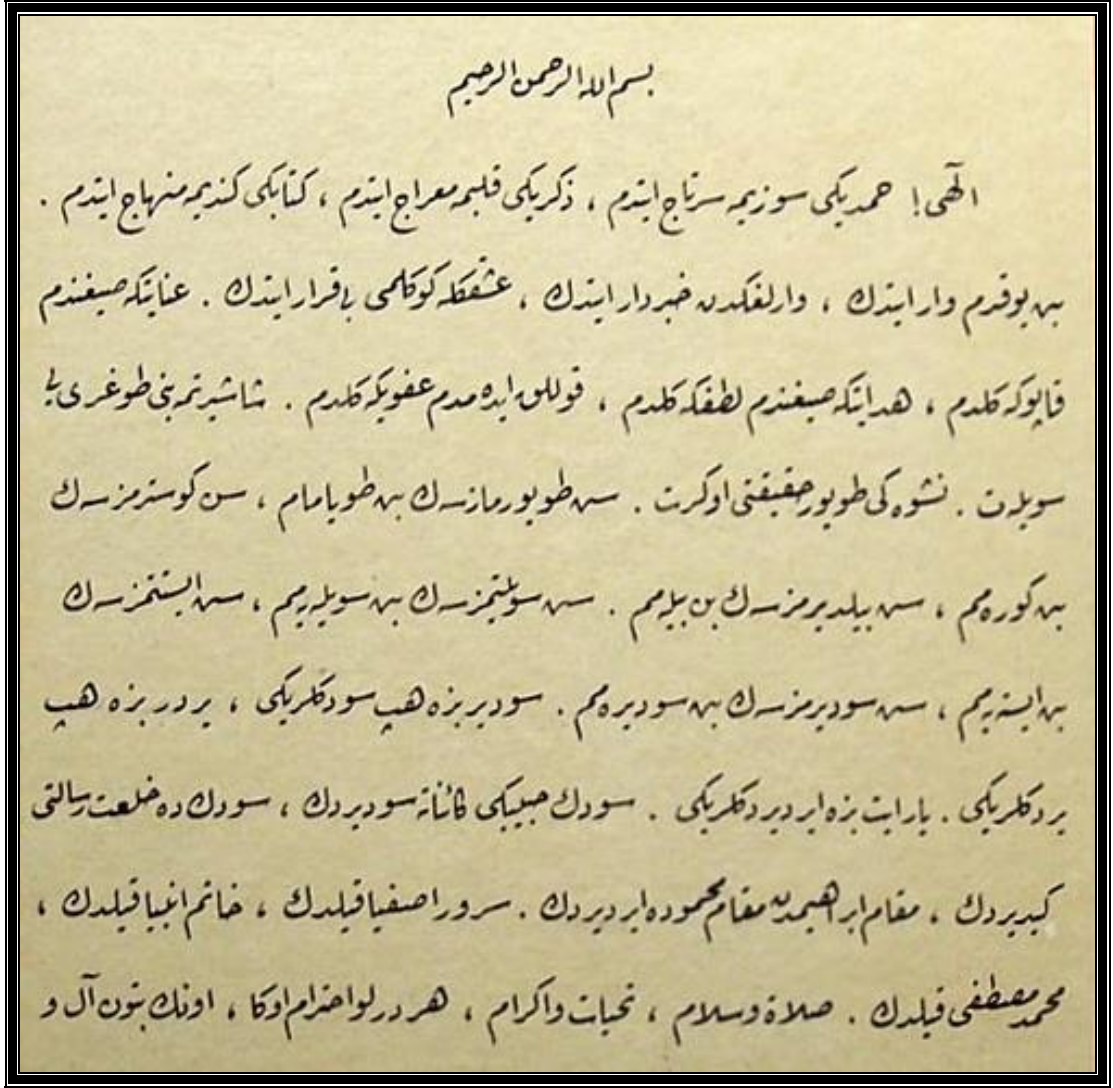 بسم الله الرحمن الرحيم
الٓهی! حمدیكی سوزیمه سرتاج ایتدم ، ذكریكی قلبمه معراج ایتدم ، كتابكی كندیمه منهاج ایتدم .
بن یوقدم وار ایتدك ، وارلغكدن خبردار ایتدك ، عشقكله كوكلمی بی قرار ایتدك . عنایتكه صیغندم
قاپوكه كلدم ، هدایتكه صیغندم لطفكه كلدم ، قوللق ایده مدم عفویكه كلدم . شاشیرتمه بنی طوغری یی
سویلت . نشوه كی طویور حقیقتی اوكرت . سن طویورمازسه ك بن طویامام ، سن كوسترمزسه ك
بن كوره مم ، سن بیلدیرمزسه ك بن بیله مم . سن سویلتمزسه ك بن سویلیه مم ، سن ایستتمزسه ك
بن ایسته یه مم ، سن سودیرمزسه ك بن سودیره مم . سودیر بزه هپ سودكلریكی ، یردیر بزه هپ
یردكلریكی . یار ایت بزه ایردیردكلریكی . سودك حبیبكی كائناته سودیردك ، سودك ده خلعت رسالتی
كیدیردك ، مقام ابراهیمدن مقام محموده ایردیردك . سرور اصفیا قیلدك ، خاتم انبیا قیلدك ،
محمد مصطفی قیلدك . صلاة وسلام ، تحیات واكرام ، هر درلو احترام اوكا ، اونك بتون آل و